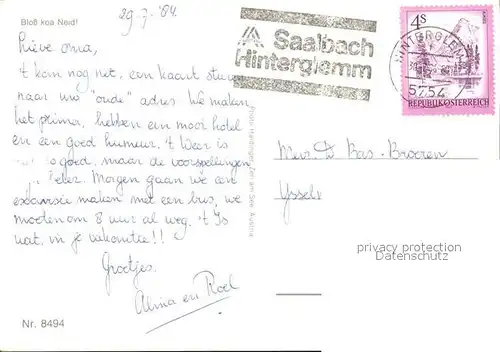 Bloß koa Neid!
29-7-'84.
Lieve oma,
't kon nog net, een kaart sturen
naar uw "oude" adres. We maken
het prima, hebben een mooi hotel
en een goed humeur. 't Weer is
zo goed, maar de voorspellingen
beter. Morgen gaan we een
excursie maken met een bus, we
moeten om 8 uur al weg. 't Is
wat, in je vakantie!!
Groetjes,
Alma en Roel
Nr. 8494
Saalbach
Hinterglemm
HINTERGLEMM
5754
4 S
REPUBLIK ÖSTERREICH
Mevr. D Bas-Broeren
Yssel
privacy protection
WATERMARK